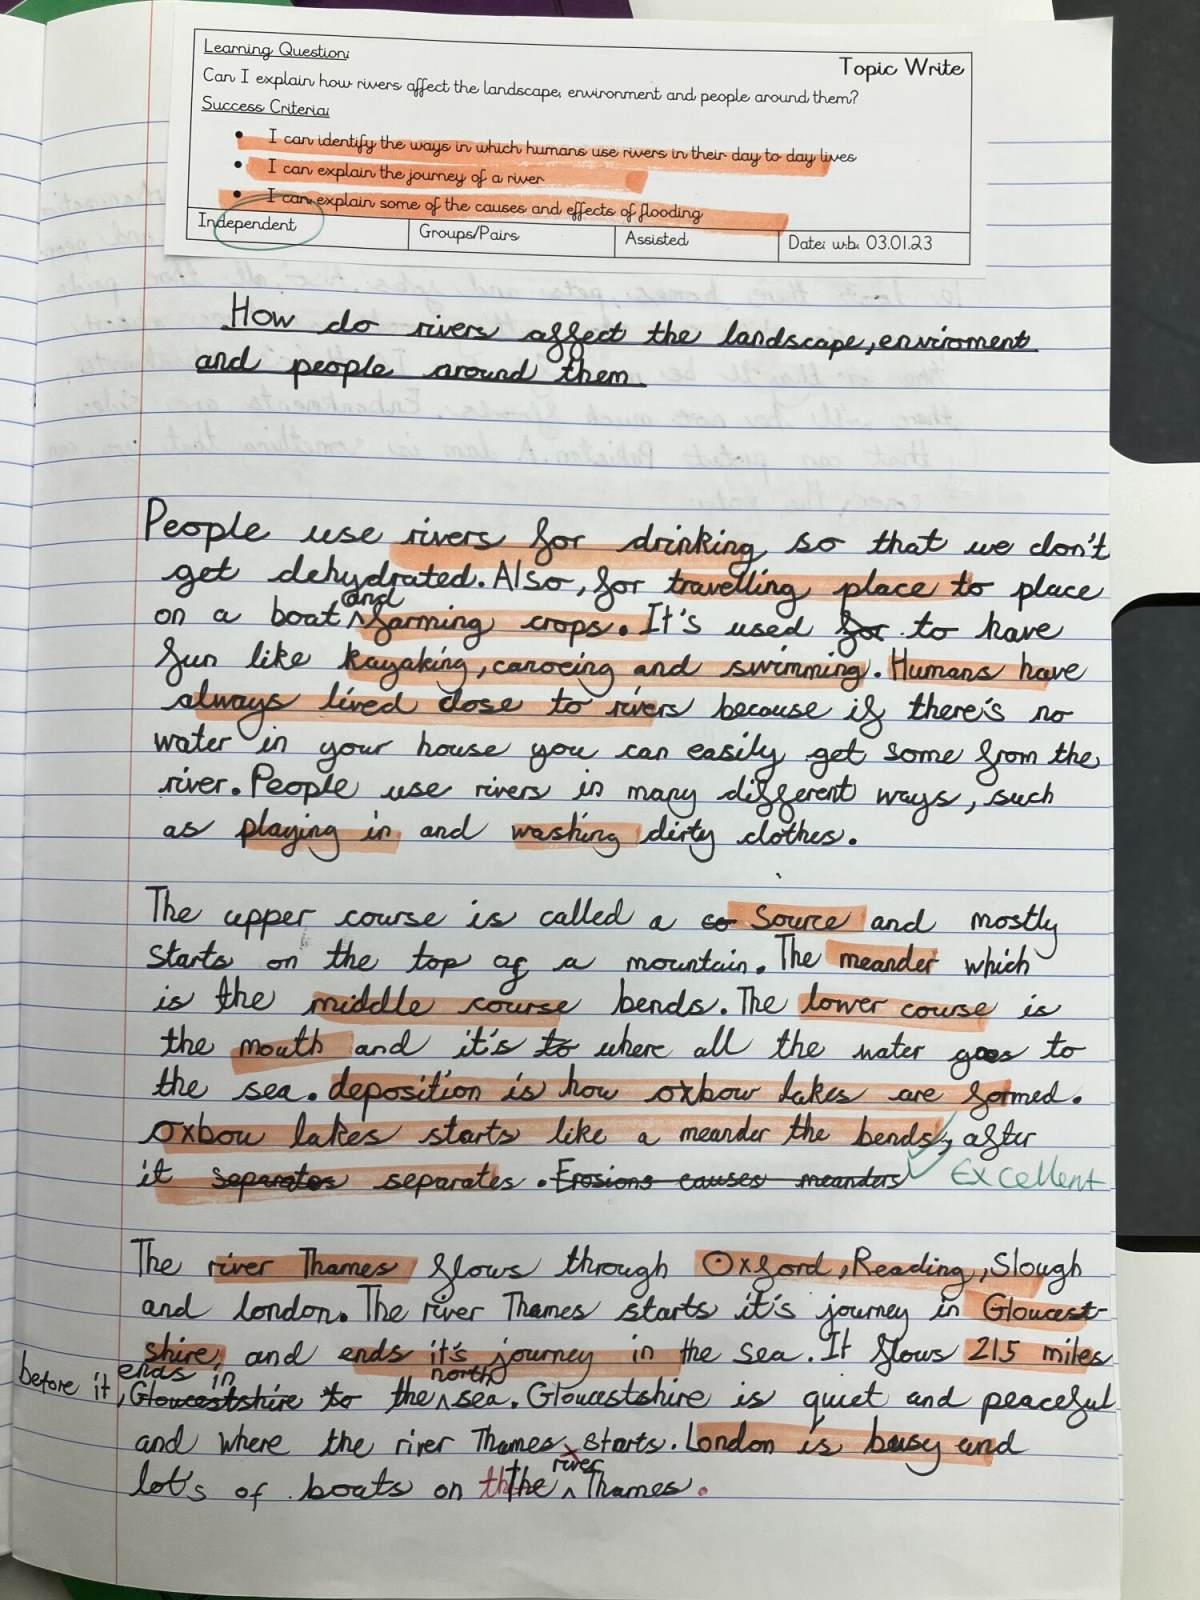 Learning Question:
Topic Write
Can I explain how rivers affect the landscape, environment and people around them?
Success Criteria:
• I can identify the ways in which humans use rivers in their day to day lives
• I can explain the journey of a river
• I can explain some of the causes and effects of flooding
Independent Groups/Pairs Assisted Date: w.b. 03.01.23
How do rivers affect the landscape, enviroment
and people around them
People use rivers for drinking so that we don't
get dehydrated. Also, for travelling place to place
on a boat and farming crops. It's used for to have
fun like kayaking, canoeing and swimming. Humans have
always lived close to rivers because if there's no
water in your house you can easily get some from the
river. People use rivers in many different ways, such
as playing in and washing dirty clothes.
The upper course is called a so Source and mostly
starts on the top of a mountain. The meander which
is the middle course bends. The lower course is
the mouth and it's to where all the water goes to
the sea. deposition is how oxbow lakes are formed.
Oxbow lakes starts like a meander the bends, after
it separates separates. Erosions causes meanders
Excellent
The river Thames flows through Oxford, Reading, Slough
and london. The river Thames starts it's journey in Gloucest-
shire, and ends it's journey in the sea. It flows 215 miles
before it ends in, Gloucestshire to the north sea. Gloucestshire is quiet and peaceful
and where the river Thames starts. London is busy and
lot's of boats on th the river Thames.